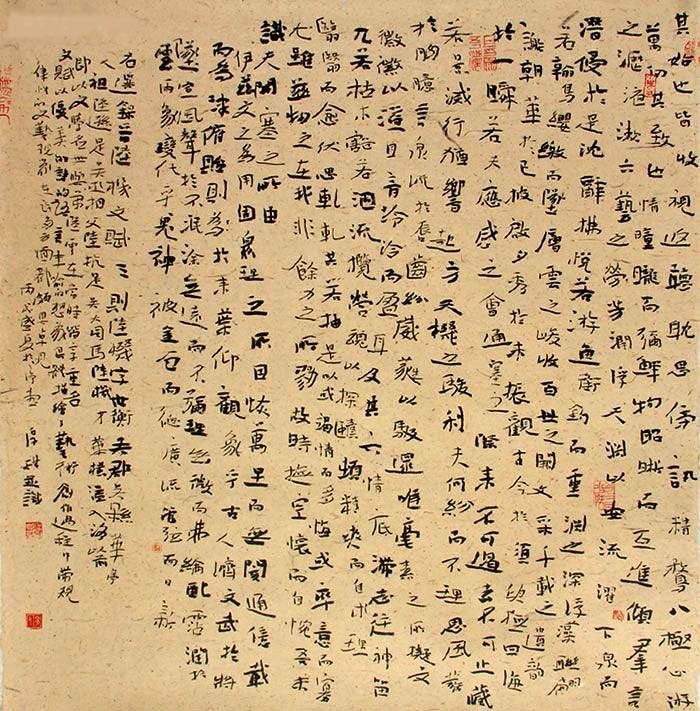 其始也皆收視返聽耽思傍訊精鶩八極心游
萬仞其致也情曈曨而彌鮮物昭晰而互進傾群言
之瀝液漱六藝之芳潤浮天淵以安流濯下泉而
潛浸於是沈辭怫悅若游魚銜鈎而重淵之深浮藻聯翩
若翰鳥纓繳而墜層雲之峻收百世之闕文采千載之遺韻
謝朝華於已披啟夕秀於未振觀古今於須臾撫四海
於一瞬若夫應感之會通塞之際來不可遏去不可止藏
若景滅行猶響起方天機之駿利夫何紛而不理思風發
於胸臆言泉流於唇齒紛葳蕤以馺遝唯毫素之所擬文
徽徽以溢目音泠泠而盈耳及其六情底滯志往神留
兀若枯木豁若涸流攬營魂以探賾頓精爽而自求理
翳翳而愈伏思軋軋其若抽是以或竭情而多悔或率意而寡
尤雖茲物之在我非餘力之所勠故時撫空懷而自惋吾未
識夫開塞之所由
伊茲文之為用固眾理之所因恢萬里而無閡通億載
而為津俯貽則於來葉仰觀象乎古人濟文武於將
墜宣風聲於不泯塗無遠而不彌理無微而弗綸配霑潤於
雲雨象變化乎鬼神被金石而德廣流管弦而日新
右選錄晉陸機文賦三則陸機字士衡吳郡吳縣華亭
人祖陸遜是吳丞相父陸抗是吳大司馬陸機才華橫溢入洛以前
即以文學名世與弟陸雲在當時皆享重名
文賦以優美的詩的語言生動形象具體描繪了藝術創作過程中帶規
律性的文藝現象
丙戌盛夏於